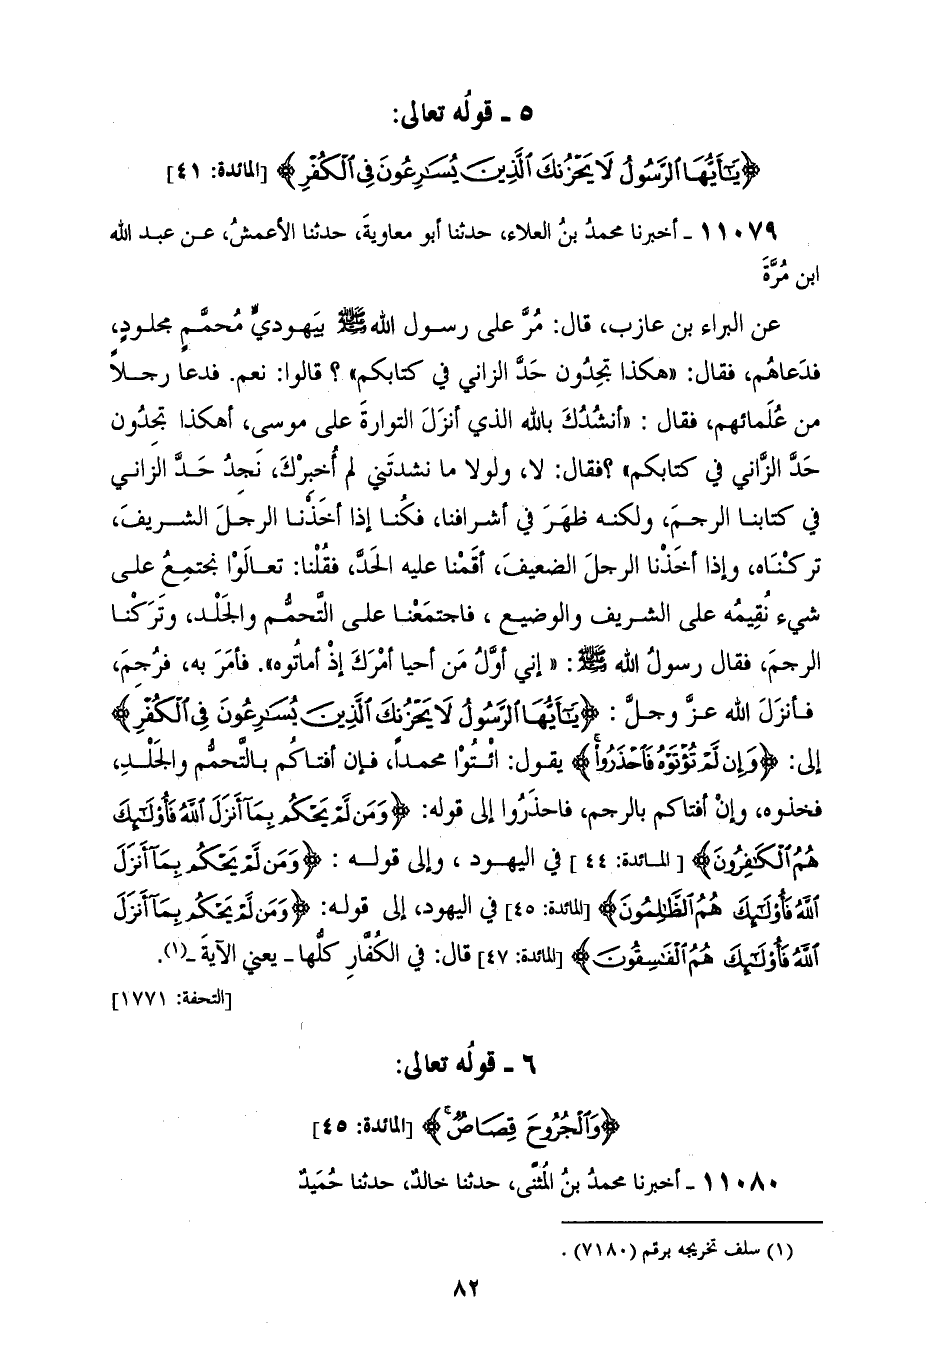 ٥ ـ قولُه تعالى:
﴿يَـٰٓأَيُّهَا ٱلرَّسُولُ لَا يَحْزُنكَ ٱلَّذِينَ يُسَـٰرِعُونَ فِى ٱلْكُفْرِ﴾ [المائدة: ٤١]
١١٠٧٩ ـ أخبرنا محمدُ بنُ العلاء، حدثنا أبو معاويةَ، حدثنا الأعمشُ، عـن عبـد الله
ابن مُرَّةَ
عن البراء بن عازب، قال: مُرَّ على رسول الله ﷺ بيَهوديٍّ مُحمَّمٍ مجلودٍ،
فدَعاهُم، فقال: «هكذا تجِدُون حَدَّ الزاني في كتابكم» ؟ قالوا: نعم. فدعا رجـلاً
من عُلَمائهم، فقال : «أنشُدُكَ بالله الذي أنزَلَ التوارةَ على موسى، أهكذا تجِدُون
حَدَّ الزَّاني في كتابكم» ؟فقال: لا، ولولا ما نشدتَني لم أُخبِرْكَ، نَجِدُ حَـدَّ الزانـي
في كتابنـا الرجـمَ، ولكنـه ظهَرَ في أشرافنا، فكُنـا إذا أخَذْنـا الرجـلَ الشـريفَ،
تركْنَاه، وإذا أخَذْنا الرجلَ الضعيفَ، أقَمْنا عليه الحَدَّ، فقُلْنا: تعـالَوْا نجتمِعُ علـى
شيء نُقِيمُه على الشريف والوضيع ، فاجتمَعْنـا علـى التَّحمُّـم والجَلْـد، وتَرَكْنـا
الرجمَ، فقال رسولُ الله ﷺ: « إني أوَّلُ مَن أحيا أمْرَكَ إذْ أماتُوه». فأمَرَ به، فرُجِمَ،
فـأنزَلَ الله عـزَّ وجـلَّ : ﴿يَـٰٓأَيُّهَا ٱلرَّسُولُ لَا يَحْزُنكَ ٱلَّذِينَ يُسَـٰرِعُونَ فِى ٱلْكُفْرِ﴾
إلى: ﴿وَإِن لَّمْ تُؤْتَوْهُ فَٱحْذَرُواْ﴾ يقول: ائْـتُوْا محمـداً، فـإن أفتـاكُم بـالتَّحمُّم والجَلْـدِ،
فخذوه، وإنْ أفتاكم بالرجم، فاحذَرُوا إلى قوله: ﴿وَمَن لَّمْ يَحْكُم بِمَآ أَنزَلَ ٱللَّهُ فَأُوْلَـٰٓئِكَ
هُمُ ٱلْكَـٰفِرُونَ﴾ [ المـائدة: ٤٤ ] في اليهـود ، وإلى قولـه : ﴿وَمَن لَّمْ يَحْكُم بِمَآ أَنزَلَ
ٱللَّهُ فَأُوْلَـٰٓئِكَ هُمُ ٱلظَّـٰلِمُونَ﴾ [المائدة: ٤٥] في اليهود، إلى قولـه: ﴿وَمَن لَّمْ يَحْكُم بِمَآ أَنزَلَ
ٱللَّهُ فَأُوْلَـٰٓئِكَ هُمُ ٱلْفَـٰسِقُونَ﴾ [المائدة: ٤٧] قال: في الكُفَّارِ كُلُّها ـ يعني الآيةَ ـ(١).
[التحفة: ١٧٧١]
٦ ـ قولُه تعالى:
﴿وَٱلْجُرُوحَ قِصَاصٌ﴾ [المائدة: ٤٥]
١١٠٨٠ ـ أخبرنا محمدُ بنُ المُثنَّى، حدثنا خالدٌ، حدثنا حُمَيدٌ
(١) سلف تخريجه برقم (٧١٨٠) .
٨٢